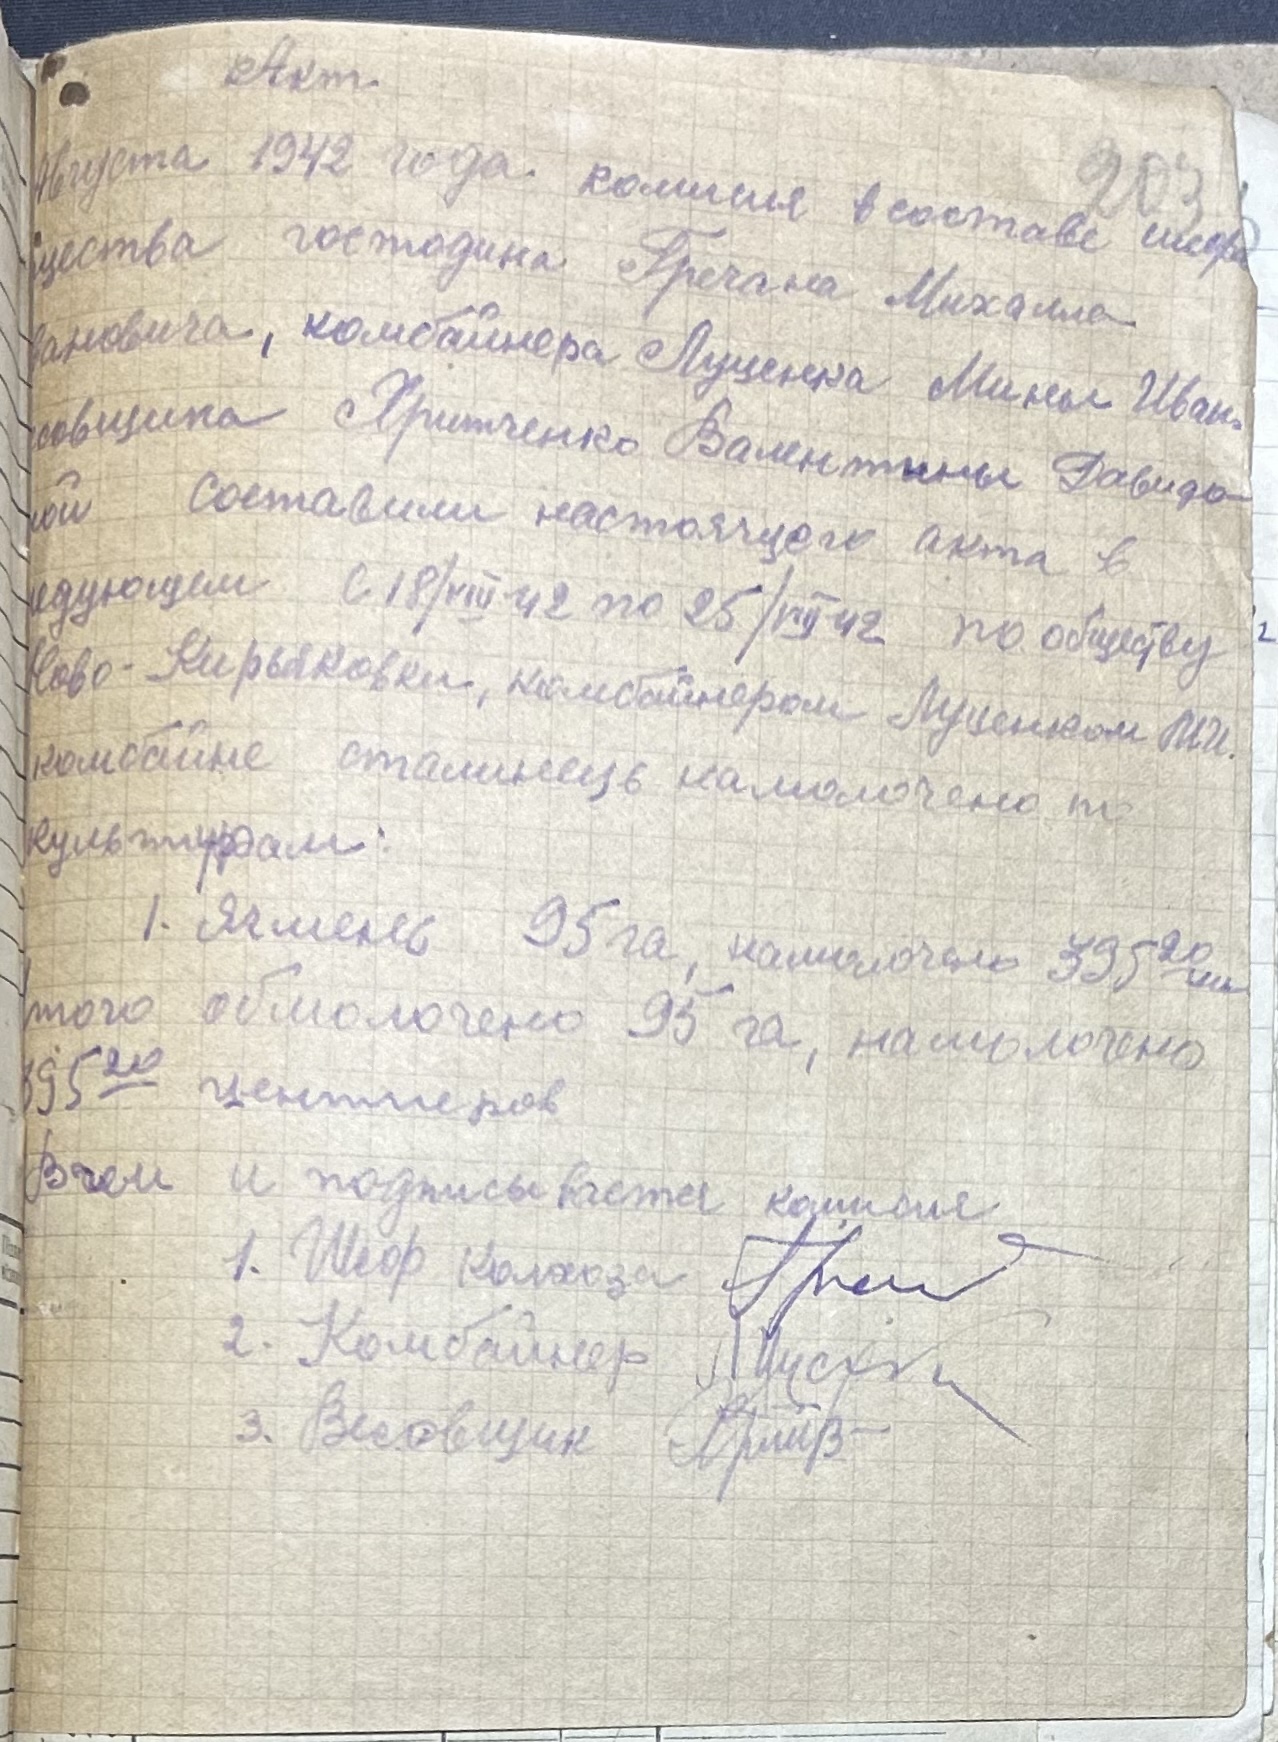 Акт.
203
Августа 1942 года. комисия в составе шефа
щества господина Гречана Михаила
ановича, комбайнера Луценка Мины Иван.
совщика Хритченко Валентины Давидо-
ной составили настоячцего акта в
едующем С 18/VIII-42 по 25/VIII-42 по обществу
Ново-Кирьяковки, комбайнером Луценком М.И.
комбайне сталинець намолочено по
культурам:
1. Ячмень 95 га, намолочено 395 20 цн
того обмолочено 95 га, намолочено
395 20 центнеров
В чем и подписывается комисия
1. Шеф колхоза
2. Комбайнер
3. Весовщик